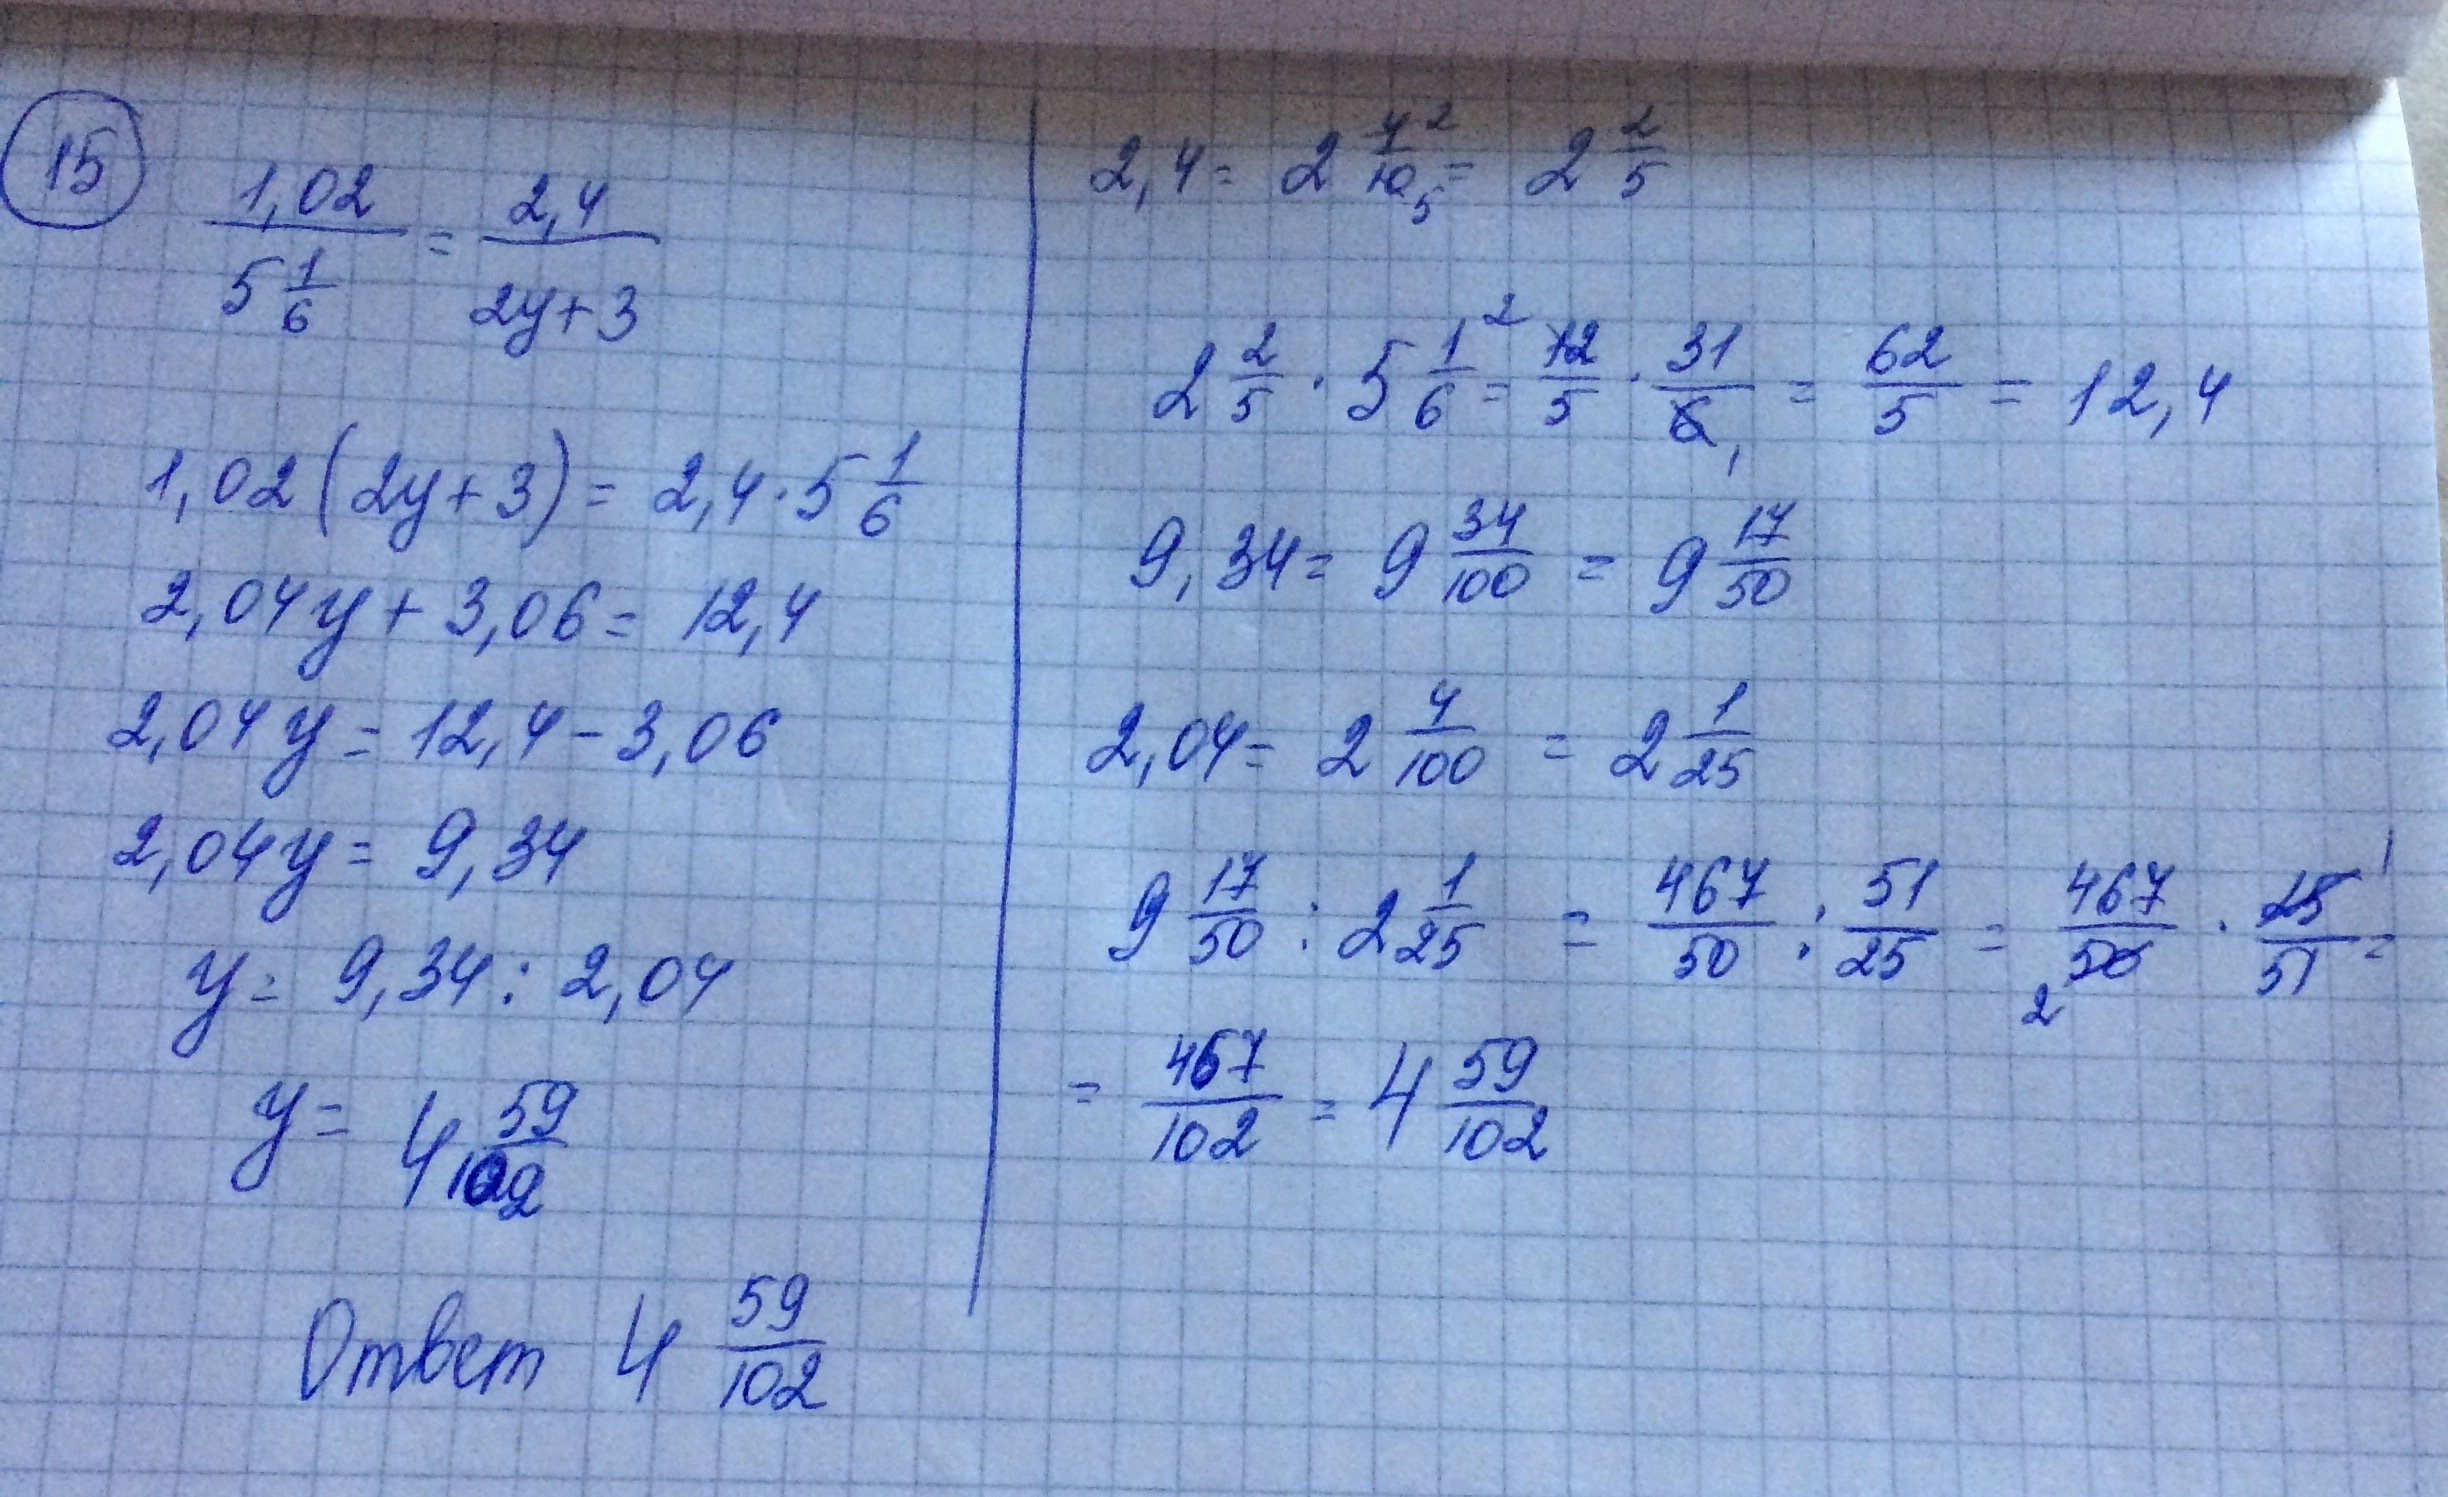 15
1,02/5 1/6 = 2,4/2y+3
1,02(2y+3) = 2,4 · 5 1/6
2,04y + 3,06 = 12,4
2,04y = 12,4 - 3,06
2,04y = 9,34
y = 9,34 : 2,04
y = 4 59/102
Ответ 4 59/102
2,4 = 2 4/10 2 5 = 2 2/5
2 2/5 · 5 1/6 = 2 12/5 · 31/6 1 = 62/5 = 12,4
9,34 = 9 34/100 = 9 17/50
2,04 = 2 4/100 = 2 1/25
9 17/50 : 2 1/25 = 467/50 : 51/25 = 467/50 2 · 25 1/51 =
= 467/102 = 4 59/102